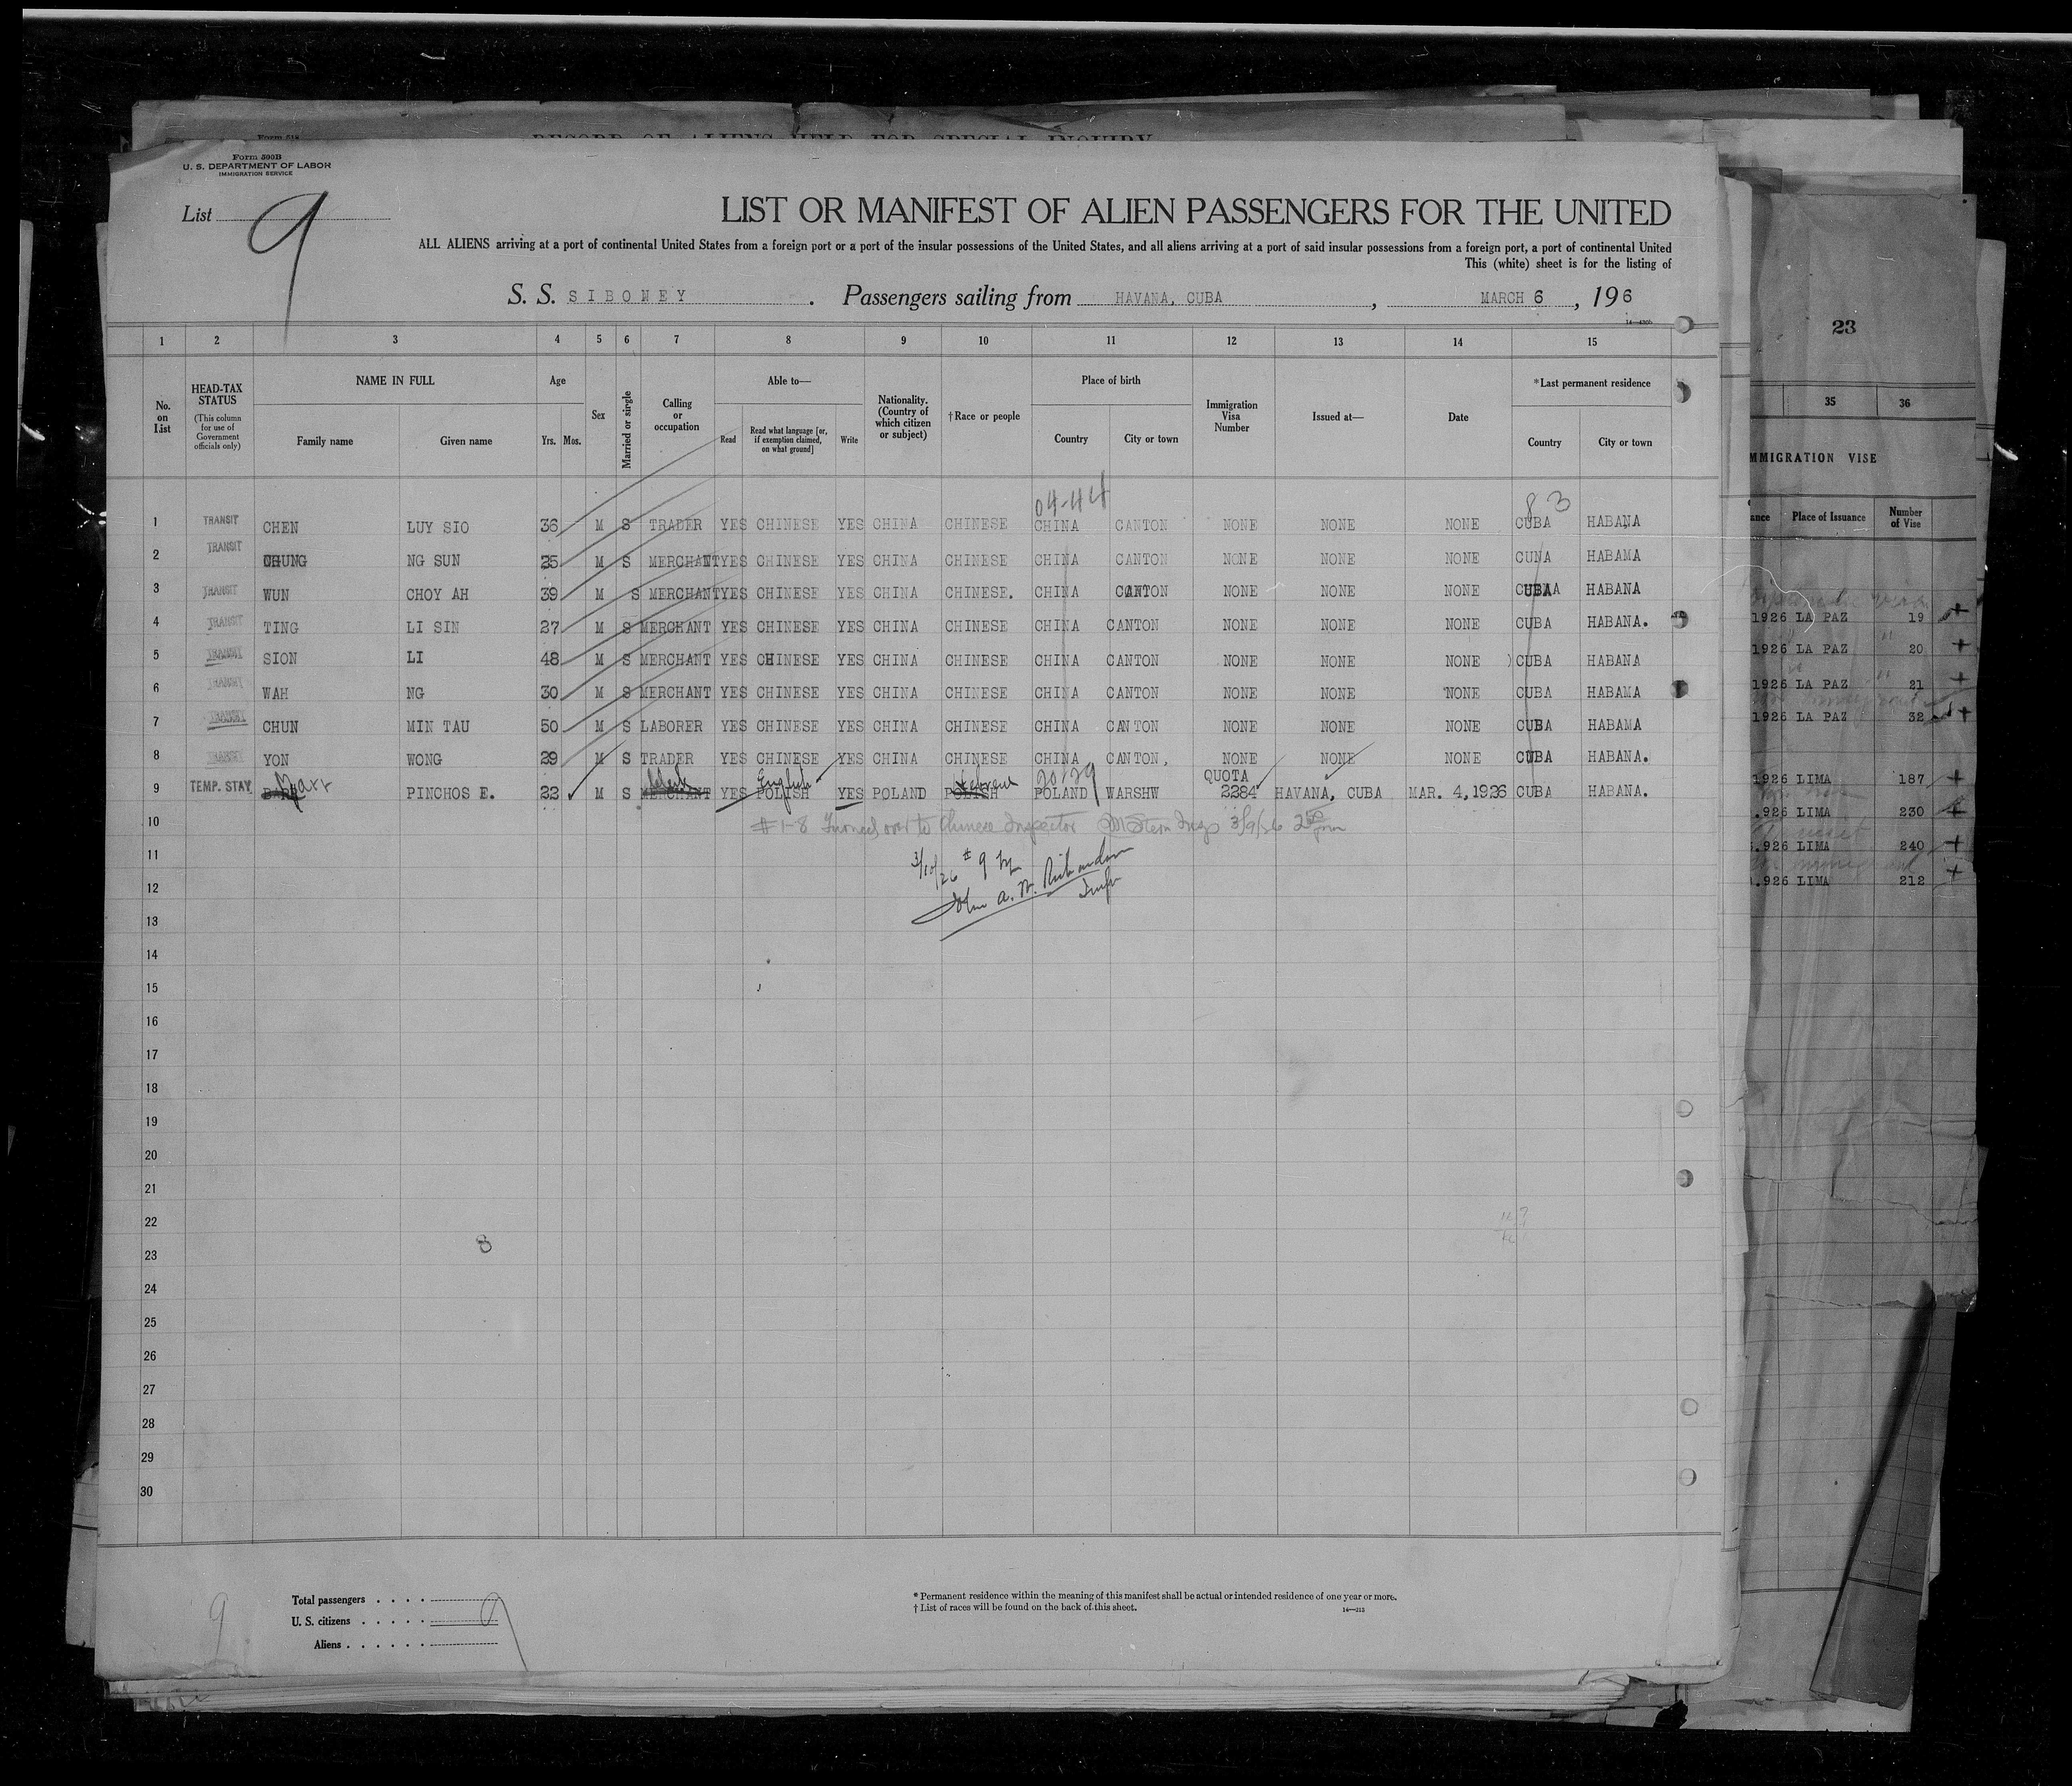 RECORD OF ALIENS HELD FOR SPECIAL INQUIRY
Form 500B
U. S. DEPARTMENT OF LABOR
IMMIGRATION SERVICE
List 9
LIST OR MANIFEST OF ALIEN PASSENGERS FOR THE UNITED
ALL ALIENS arriving at a port of continental United States from a foreign port or a port of the insular possessions of the United States, and all aliens arriving at a port of said insular possessions from a foreign port, a port of continental United
This (white) sheet is for the listing of
S. S. SIBONEY . Passengers sailing from HAVANA, CUBA , MARCH 6 , 196
1 2 3 4 5 6 7 8 9 10 11 12 13 14 15
No. on List HEAD-TAX STATUS (This column for use of Government officials only) NAME IN FULL Family name Given name Age Yrs. Mos. Sex Married or single Calling or occupation Able to— Read Read what language [or, if exemption claimed, on what ground] Write Nationality. (Country of which citizen or subject) †Race or people Place of birth Country City or town Immigration Visa Number Issued at— Date *Last permanent residence Country City or town
04-44 83
1 TRANSIT CHEN LUY SIO 36 M S TRADER YES CHINESE YES CHINA CHINESE CHINA CANTON NONE NONE NONE CUBA HABANA
2 TRANSIT CHUNG NG SUN 25 M S MERCHANT YES CHINESE YES CHINA CHINESE CHINA CANTON NONE NONE NONE CUNA HABAMA
3 TRANSIT WUN CHOY AH 39 M S MERCHANT YES CHINESE YES CHINA CHINESE. CHINA CANTON NONE NONE NONE CUBAA HABANA
4 TRANSIT TING LI SIN 27 M S MERCHANT YES CHINESE YES CHINA CHINESE CHINA CANTON NONE NONE NONE CUBA HABANA.
5 TRANSIT SION LI 48 M S MERCHANT YES CHINESE YES CHINA CHINESE CHINA CANTON NONE NONE NONE CUBA HABANA
6 TRANSIT WAH NG 30 M S MERCHANT YES CHINESE YES CHINA CHINESE CHINA CANTON NONE NONE NONE CUBA HABAMA
7 TRANSIT CHUN MIN TAU 50 M S LABORER YES CHINESE YES CHINA CHINESE CHINA CANTON NONE NONE NONE CUBA HABAMA
8 TRANSIT YON WONG 29 M S TRADER YES CHINESE YES CHINA CHINESE CHINA CANTON, NONE NONE NONE CUBA HABANA.
English Hebrew 20/29 QUOTA
9 TEMP. STAY PINCHOS E. 22 M S MERCHANT YES POLISH YES POLAND POLISH POLAND WARSHW 2284 HAVANA, CUBA MAR. 4,1926 CUBA HABANA.
10 #1-8 Turned over to Chinese Inspector Stern Insp 3/9/26
11 3/10/26 #9
12 John A. W. Richardson Insp
13
14
15
16
17
18
19
20
21
22
23 8
24
25
26
27
28
29
30
9
Total passengers . . . .
U. S. citizens . . . . . 9
Aliens . . . . . .
* Permanent residence within the meaning of this manifest shall be actual or intended residence of one year or more.
† List of races will be found on the back of this sheet.
14—213
23
35 36
MMIGRATION VISE
ance Place of Issuance Number of Vise
1926 LA PAZ 19
1926 LA PAZ 20
1926 LA PAZ 21
1926 LA PAZ 32
1926 LIMA 187
.926 LIMA 230
.926 LIMA 240
.926 LIMA 212